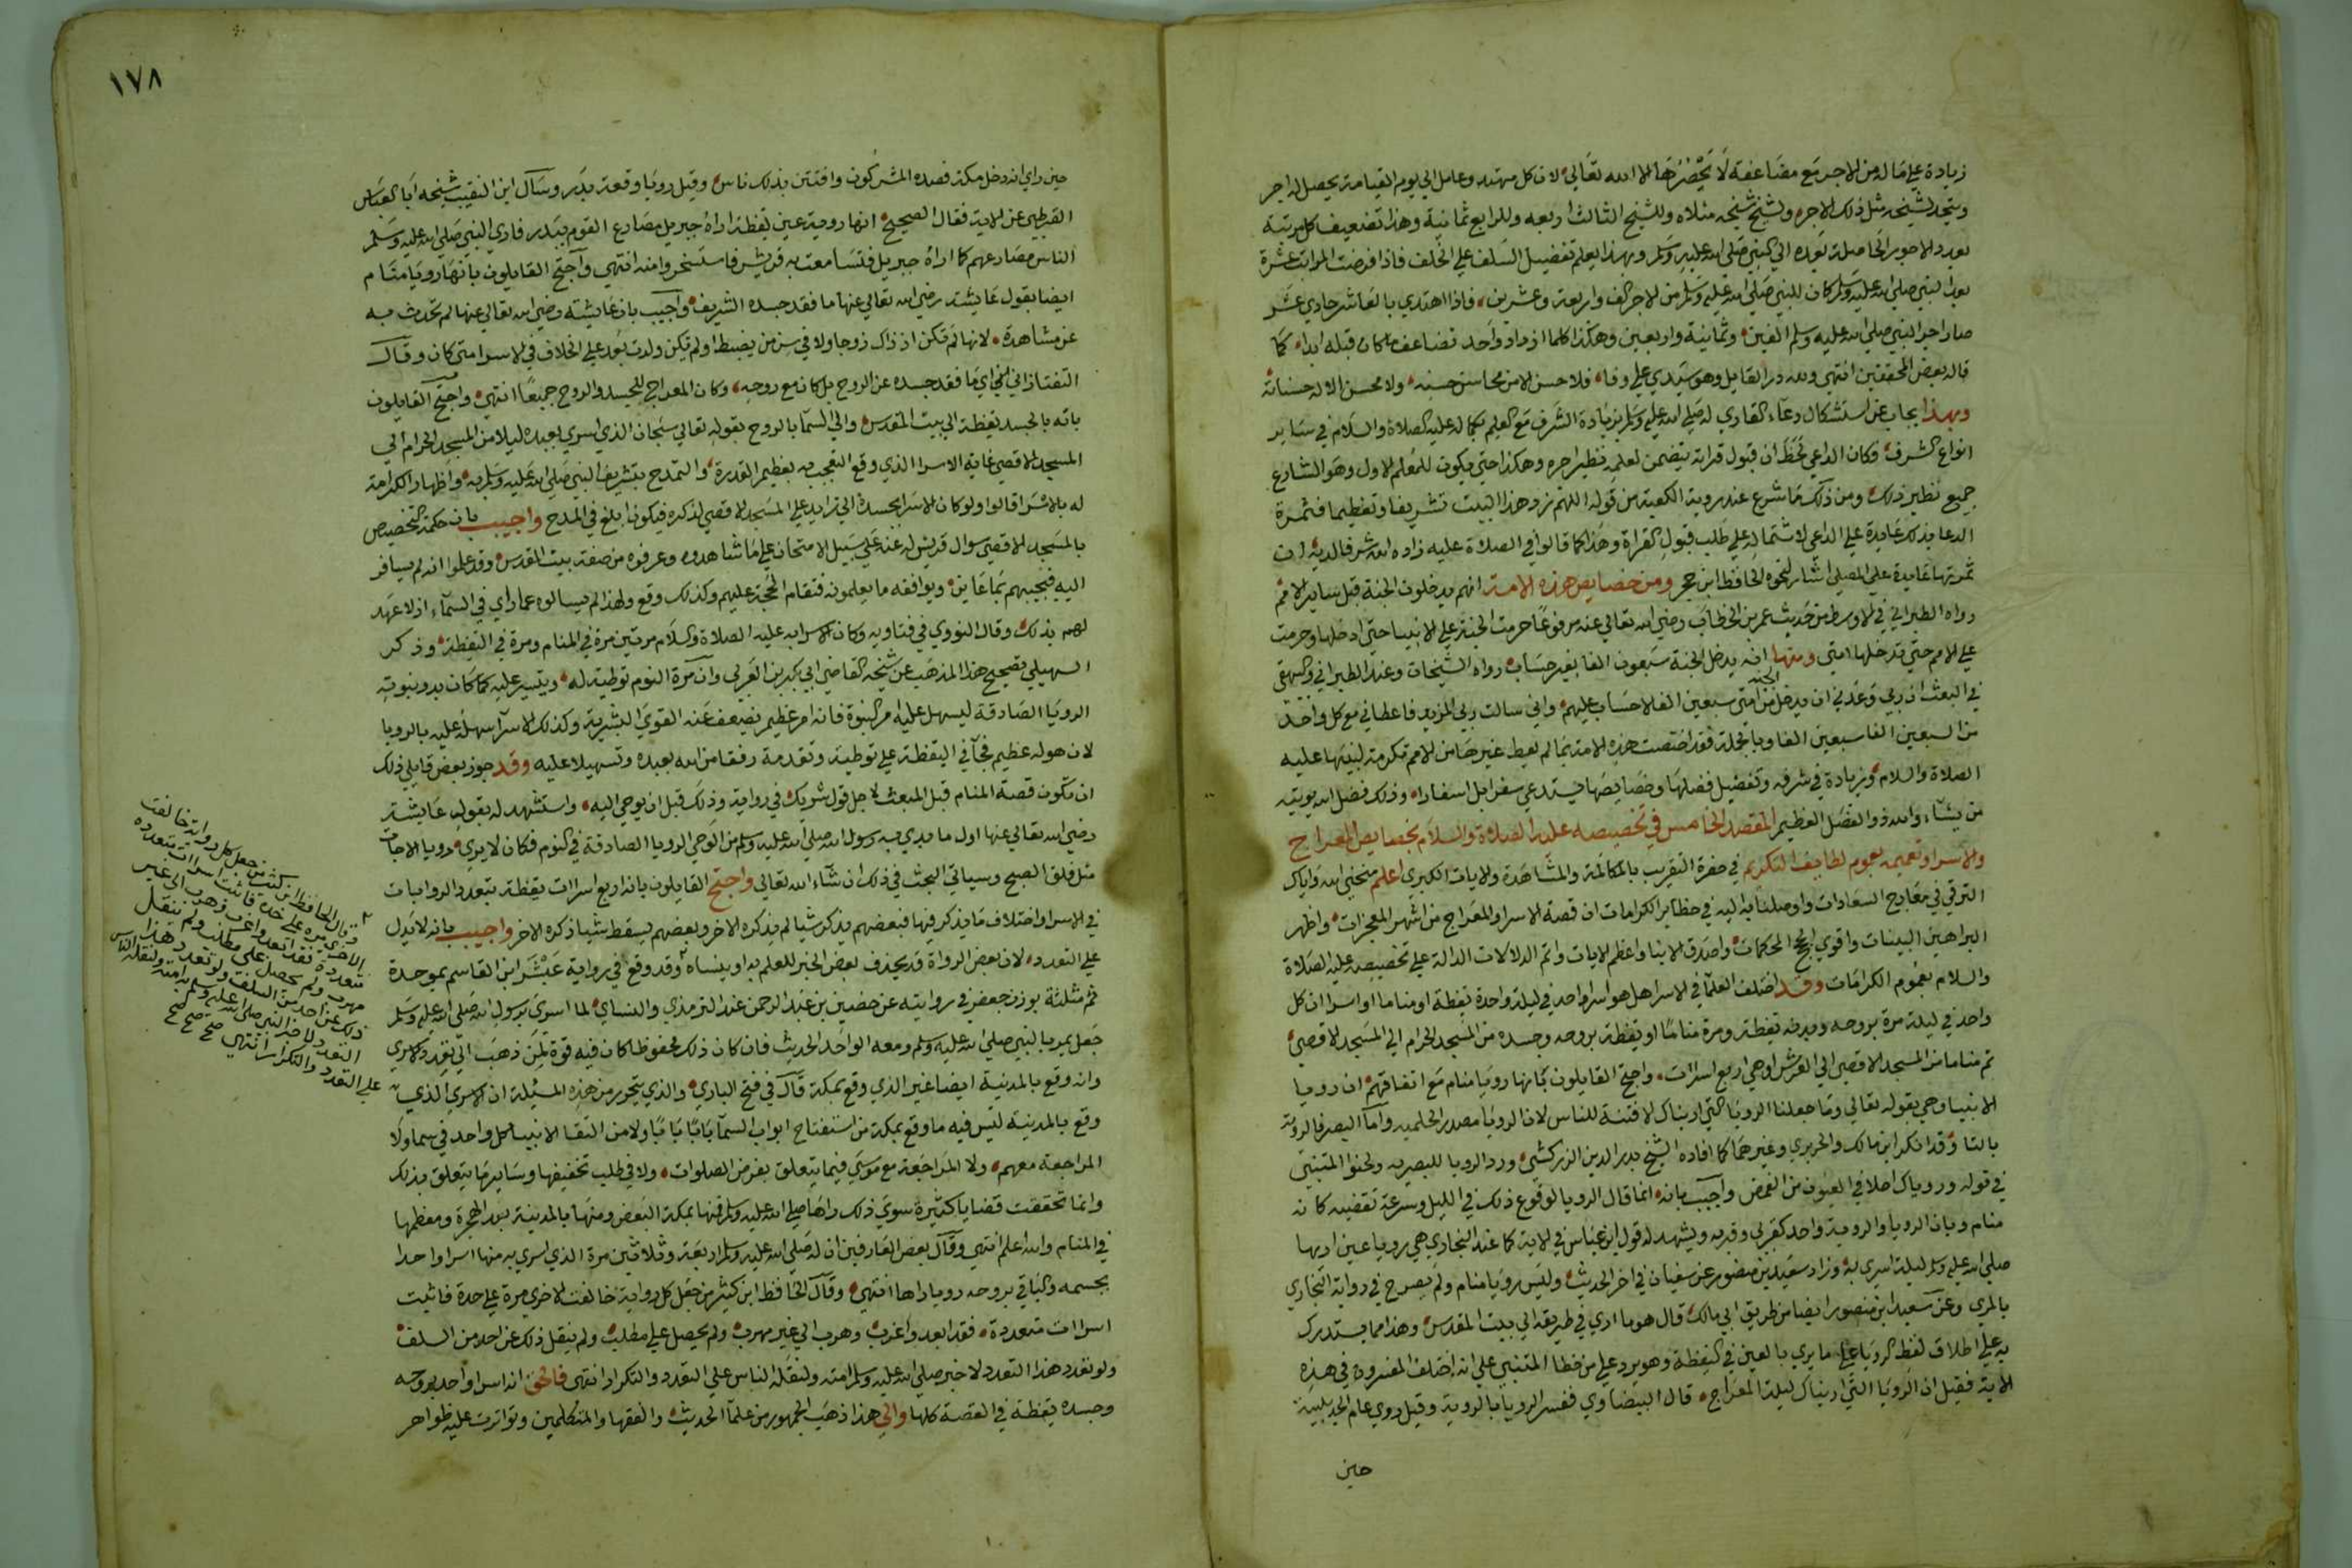 زيادة علي ماله من الاجر مع مضاعفة لا يحصرها الا الله تعالي لان كل مهتد وعامل الي يوم القيامة يحصل له اجر
ويتجدد لشيخه مثل ذلك الاجر ولشيخ شيخه مثلاه وللشيخ الثالث اربعه وللرابع ثمانية وهذا تضعيف كل مرتبة
بعدد الاجور الحاصلة بعده الي النبي صلي الله عليه وسلم وبهذا يعلم تفضيل السلف علي الخلف فاذا فرضت المراتب عشرة
بعد النبي صلي الله عليه وسلم كان للنبي صلي الله عليه وسلم من الاجر الف واربعة وعشرين فاذا اهتدي بالعاشر حادي عشر
صار اجر النبي صلي الله عليه وسلم الفين وثمانية واربعين وهكذا كلما ازداد واحد تضاعف ما كان قبله ابدا كما
قاله بعض المحققين انتهي ولله در القايل وهو سيدي علي وفا فلا حسن الا من محاسن حسنه ولا محسن الا له حسناته
وبهذا يجاب عن استشكال دعاء القاري له صلي الله عليه وسلم بزيادة الشرف مع العلم بكماله عليه الصلاة والسلام في ساير
انواع الشرف فكان الداعي لحظ ان قبول قراته يتضمن لمعلمه نظير اجره وهكذا حتي يكون للمعلم الاول وهو الشارع
جميع نظير ذلك ومن ذلك ما شرع عند روية الكعبة من قوله اللهم زد هذا البيت تشريفا وتعظيما فثمرة
الدعا بذلك عايدة علي الداعي لاشتماله علي طلب قبول القراة وهذا كما قالوا في الصلاة عليه زاده الله شرفا لديه ان
ثمرتها عايدة علي المصلي اشار لنحوه الحافظ ابن حجر ومن خصايص هذه الامة انهم يدخلون الجنة قبل ساير الامم
رواه الطبراني في الاوسط من حديث عمر بن الخطاب رضي الله تعالي عنه مرفوعا حرمت الجنة علي الانبيا حتي ادخلها وحرمت
علي الامم حتي تدخلها امتي ومنها انه يدخل الجنة سبعون الفا بغير حساب رواه الشيخان وعند الطبراني والبيهقي
في البعث ان ربي وعدني ان يدخل الجنة من امتي سبعين الفا لا حساب عليهم واني سالت ربي المزيد فاعطاني مع كل واحد
من السبعين الفا سبعين الفا وبالجملة فقد اختصت هذه الامة بما لم يعط غيرها من الامم تكرمة لنبيها عليه
الصلاة والسلام وزيادة في شرفه وتفضيل فضلها وخصايصها يستدعي سفرا بل اسفارا وذلك فضل الله يوتيه
من يشاء والله ذو الفضل العظيم المقصد الخامس في تخصيصه عليه الصلاة والسلام بخصايص المعراج
والاسرا وتعميمه بعموم لطايف التكريم في حضرة التقريب بالمكالمة والمشاهدة والايات الكبري اعلم منحني الله واياك
الترقي في معارج السعادات واوصلنا به اليه في حظاير الكرامات ان قصة الاسرا والمعراج من اشهر المعجزات واظهر
البراهين البينات واقوي الحجج المحكمات واصدق الانبا واعظم الايات واتم الدلالات الدالة علي تخصيصه عليه الصلاة
والسلام بعموم الكرامات وقد اختلف العلما في الاسرا هل هو اسرا واحد في ليلة واحدة يقظة او مناما او اسراان كل
واحد في ليلة مرة بروحه وبدنه يقظة ومرة مناما او يقظة بروحه وجسده من المسجد الحرام الي المسجد الاقصي
ثم مناما من المسجد الاقصي الي العرش او هي اربع اسراات واحتج القايلون بانها رويا منام مع اتفاقهم ان رويا
الانبيا وحي بقوله تعالي وما جعلنا الرويا التي اريناك الا فتنة للناس لان الرويا مصدر الحلمية واما البصرفالروية
بالتا وقد انكر ابن مالك والحريري وغيرهما كما افاده الشيخ بدر الدين الزركشي ورد الرويا للبصريه ولحنوا المتنبي
في قوله ورويا ك احلا في العيون من الغمض واجيب بانه انما قال الرويا لوقوع ذلك في الليل وسرعة تقضيه كانه
منام وبان الرويا والروية واحد كقربي وقربه ويشهد له قول ابن عباس في الاية كما عند البخاري هي رويا عين اريها
صلي الله عليه وسلم ليلة اسري به وزاد سعيد بن منصور عن سفيان في اخر الحديث وليس رويا منام ولم يصرح في رواية البخاري
بالمري وعن سعيد ابن منصور ايضا من طريق ابي مالك قال هو ما اري في طريقه الي بيت المقدس وهذا مما يستدرك
به علي اطلاق لفظ الرويا علي ما يري بالعين في اليقظة وهو يرد علي من خطا المتنبي علي انه اختلف المفسرون في هذه
الاية فقيل ان الرويا التي اريناك ليلة المعراج قال البيضاوي ففسر الرويا بالروية وقيل روي عام الحديبية
حين
١٧٨
حين راي انه دخل مكة فصده المشركون وافتتن بذلك ناس وقيل رويا وقعة بدر وسال ابن النقيب شيخه ابا العباس
القرطبي عن الاية فقال الصحيح انها روية عين يقظة اراه جبريل مصارع القوم ببدر فاري النبي صلي الله عليه وسلم
الناس مصارعهم كما اراه جبريل فتسامعت به قريش فاستسخروا منه انتهي واحتج القايلون بانها رويا منام
ايضا بقول عايشة رضي الله تعالي عنها ما فقد جسده الشريف واجيب بان عايشة رضي الله تعالي عنها لم تحدث به
عن مشاهدة لانها لم تكن اذ ذاك زوجا ولا في سن من يضبط او لم تكن ولدت بعد علي الخلاف في الاسرا متي كان وقال
التفتازاني اي ما فقد جسده عن الروح بل كان مع روحه وكان المعراج للجسد والروح جميعا انتهي واحتج القايلون
بانه بالجسد يقظة الي بيت المقدس والي السما بالروح بقوله تعالي سبحان الذي اسري بعبده ليلا من المسجد الحرام الي
المسجد الاقصي غاية الاسرا الذي وقع التعجب به بعظيم القدرة والتمدح بتشريف النبي صلي الله عليه وسلم به واظهار الكرامة
له بالاسرا قالوا ولو كان الاسرا بجسده الي زايد علي المسجد الاقصي لذكره فيكون ابلغ في المدح واجيب بان حكمة التخصيص
بالمسجد الاقصي سوال قريش له عنه علي سبيل الامتحان علي ما شاهدوه وعرفوه من صفة بيت المقدس وقد علموا انه لم يسافر
اليه فيجيبهم بما عاين ويوافقه ما يعلمونه فتقام الحجة عليهم وكذلك وقع ولهذا لم يسالوه عما راي في السماء اذ لا عهد
لهم بذلك وقال النووي في فتاويه وكان الاسرا به عليه الصلاة والسلام مرتين مرة في المنام ومرة في اليقظة وذكر
السهيلي تصحيح هذا المذهب عن شيخه القاضي ابي بكر بن العربي وان مرة النوم توطية له وتيسير عليه كما كان بدو نبوته
الرويا الصادقة ليسهل عليه امر النبوة فانه امر عظيم تضعف عنه القوي البشرية وكذلك الاسرا سهله عليه بالرويا
لان هوله عظيم فجا في اليقظة علي توطية وتقدمة رفقا من الله بعبده وتسهيلا عليه وقد جوز بعض قايلي ذلك
ان تكون قصة المنام قبل المبعث لاجل قول شريك في رواية وذلك قبل ان يوحي اليه واستشهد له بقول عايشة
رضي الله تعالي عنها اول ما بدي به رسول الله صلي الله عليه وسلم من الوحي الرويا الصادقة في النوم فكان لا يري رويا الا جات
مثل فلق الصبح وسياتي البحث في ذلك ان شاء الله تعالي واحتج القايلون بانه اربع اسراات يقظة بتعدد الروايات
في الاسرا واختلاف ما يذكر فيها فبعضهم يذكر شيا لم يذكره الاخر وبعضهم يسقط شيا ذكره الاخر واجيب بانه لا يدل
علي التعدد لان بعض الرواة قد يحذف بعض الخبر للعلم به او ينساه وقد وقع في رواية عبثر ابن القاسم بموحدة
ثم مثلثة بوزن جعفر في روايته عن حصين بن عبد الرحمن عند الترمذي والنساي لما اسري برسول الله صلي الله عليه وسلم
جعل يمر بالنبي صلي الله عليه وسلم ومعه الواحد الحديث فان كان ذلك محفوظا كان فيه قوة لمن ذهب الي تعدد الاسري
وانه وقع بالمدينة ايضا غير الذي وقع بمكة قال في فتح الباري والذي يتحرر من هذه المسئلة ان الاسري الذي
وقع بالمدينة ليس فيه ما وقع بمكة من استفتاح ابواب السما بابا بابا ولا من التقا الانبيا كل واحد في سما ولا
المراجعة معهم ولا المراجعة مع موسي فيما يتعلق بفرض الصلوات ولا في طلب تخفيفها وساير ما يتعلق بذلك
وانما تحققت قضايا كثيرة سوي ذلك راها صلي الله عليه وسلم فمنها بمكة البعض ومنها بالمدينة بعد الهجرة ومعظمها
في المنام والله اعلم انتهي وقال بعض العارفين ان له صلي الله عليه وسلم اربعة وثلاثين مرة الذي اسري به منها اسرا واحدا
بجسمه والباقي بروحه رويا راها انتهي وقال الحافظ ابن كثير من جعل كل رواية خالفت الاخري مرة علي حدة فاثبت
اسراات متعددة فقد ابعد واغرب وهرب الي غير مهرب ولم يحصل علي مطلب ولم ينقل ذلك عن احد من السلف
ولو تعدد هذا التعدد لاخبر صلي الله عليه وسلم امته ولنقله الناس علي التعدد والتكرار انتهي فالحق انه اسرا واحد بروحه
وجسده يقظة في القصة كلها والي هذا ذهب الجمهور من علما الحديث والفقها والمتكلمين وتواترت عليه ظواهر
وقال الحافظ ابن كثير من جعل كل رواية خالفت
الاخري مرة علي حدة فاثبت اسراات متعدده
متعددة فقد ابعد واغرب وهرب الي غير
مهرب ولم يحصل علي مطلب ولم ينقل
ذلك عن احد من السلف ولو تعدد هذا
التعدد لاخبر النبي صلي الله عليه وسلم به امته ولنقله الناس
علي التعدد والتكرار انتهي صح صح صح